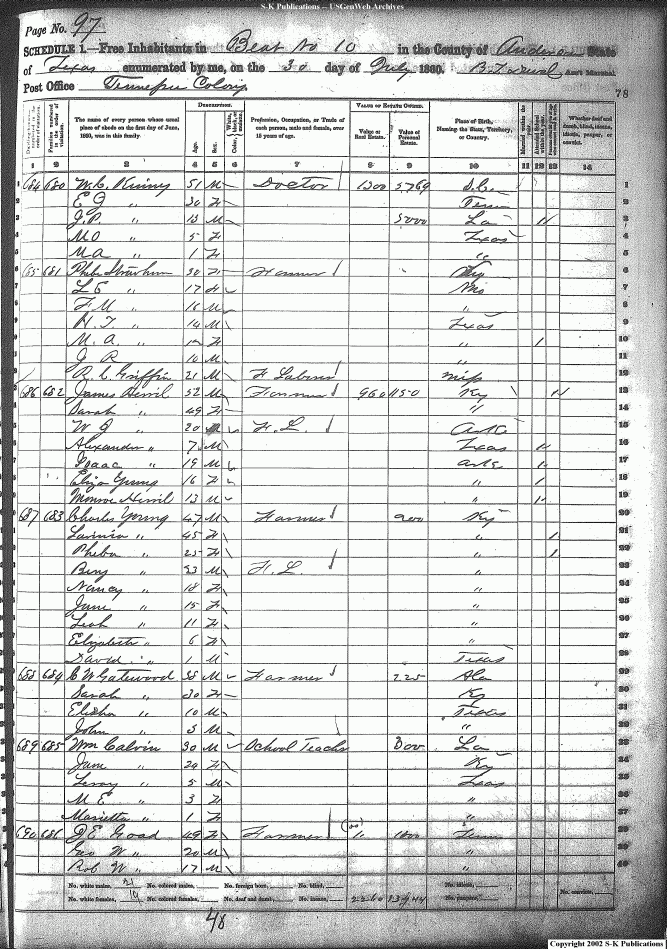 S-K Publications -- USGenWeb Archives
Page No. 97
SCHEDULE 1.—Free Inhabitants in Beat No 10 in the County of Anderson State
of Texas enumerated by me, on the 30 day of July 1860. Ass't Marshal
Post Office Colony
78
DESCRIPTION.
VALUE OF ESTATE OWNED.
The name of every person whose usual place of abode on the first day of June, 1860, was in this family.
Age.
Sex.
Profession, Occupation, or Trade of each person, male and female, over 15 years of age.
Value of Real Estate.
Value of Personal Estate.
Place of Birth, Naming the State, Territory, or Country.
Whether deaf and dumb, blind, insane, idiotic, pauper, or convict.
1 2 3 4 5 6 7 8 9 10 11 12 13 14
684 680 W.C. Kinney 51 M Doctor 1300 5769
E G " 30 F Tenn
J.P. " 13 M 5000 La
M O " 5 F Texas
M A " 1 F "
685 681 Phebe 30 F Farmer
L E " 17 F Mo
F M " 16 M "
H. T. " 14 M Texas
M. A. " 12 F "
J R 10 M "
R. L. Griffin 21 M F Laborer Miss
686 682 James 52 M Farmer 960 1150 Ky
Sarah " 49 F "
W J " 20 M F. L. Ark
Alexander " 7 M Texas
Isaac " 19 M Ark
Eliza Young 16 F "
Monroe 13 M "
687 683 Charles Young 47 M Farmer 200 Ky
Lavinia " 45 F "
Pheba " 25 F "
Benj " 23 M F. L. "
Nancy " 18 F "
Jane " 15 F "
Leah " 11 F "
Elizabeth " 6 F "
David " 1 M Texas
688 684 C W Gatewood 38 M Farmer 225 Ala
Sarah " 30 F Ky
Elisha " 10 M Texas
John " 3 M "
689 685 Wm Calvin 30 M School Teacher 300 La
Jane " 24 F Ky
Leroy " 5 M Texas
M E " 3 F "
Marietta " 1 F "
690 686 J E Goad 49 F Farmer 1800 Tenn
Geo W " 20 M "
Rob W " 17 M "
No. white males, 21 No. colored males, No. foreign born, No. blind, No. idiotic, No. convicts,
No. white females, 19 No. colored females, No. deaf and dumb, No. insane, No. paupers,
48
Copyright 2002 S-K Publications